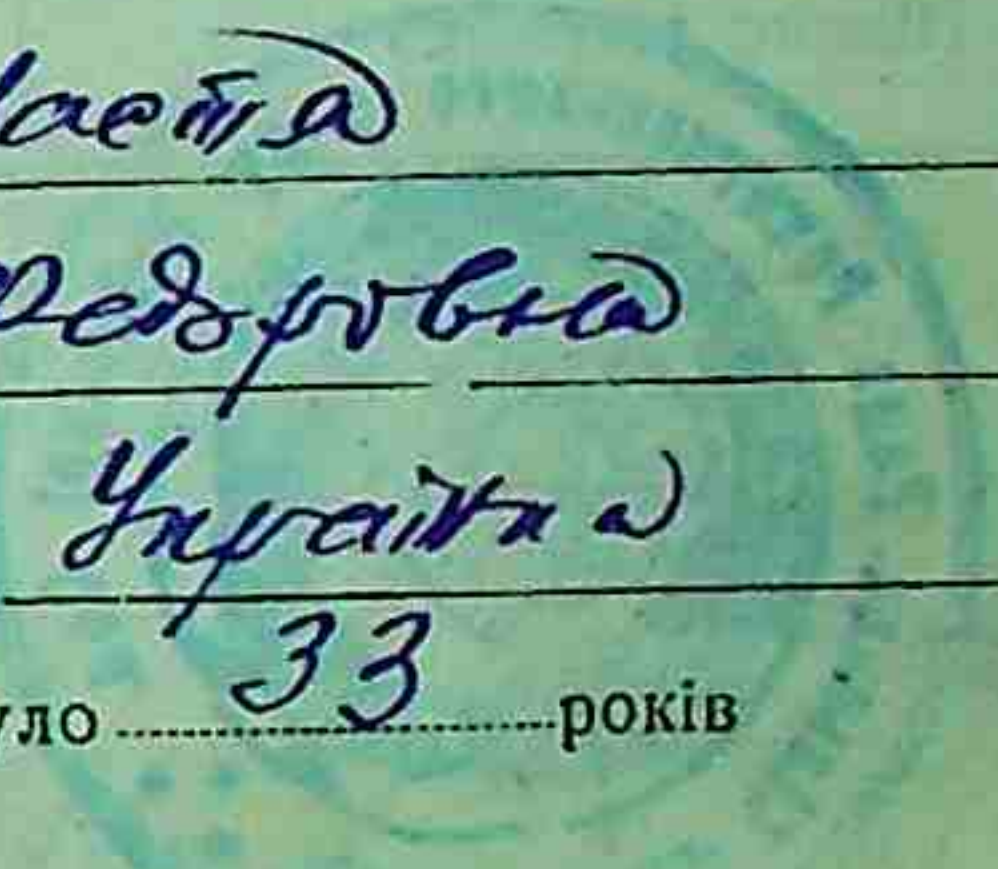 Настя
Федоровна
Україна
уло 33 років